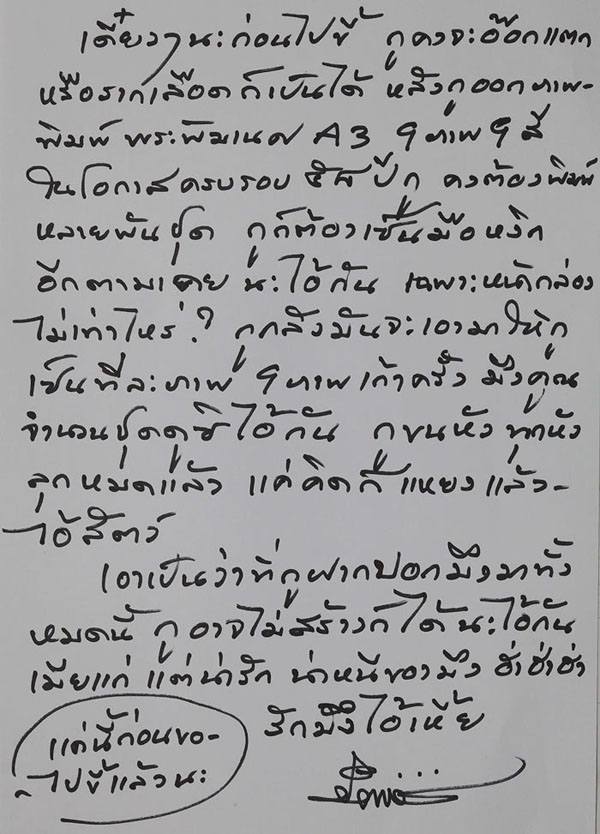 เดี๋ยวๆนะก่อนไปขี้ กูคงจะอ๊อกแตก
หรือรากเลือดก็เป็นได้ หลังกูออกภาพ-
พิมพ์ พระพิฆเนศ A3 9 ภาพ 9 สี
ในโอกาสครบรอบ ปี๊ก คงต้องพิมพ์
หลายพันชุด กูก็ต้องเซ็นมือหงิก
อีกตามเคย นะไอ้กัน เฉพาะหน้ากล่อง
ไม่เท่าไหร่.? กูกลัวมันจะเอามาให้กู
เซ็นทีละภาพ 9 ภาพเก้าครั้ง มึงคูณ
จำนวนชุดดูซิไอ้กัน กูขนหัว
ลุกหมดแล้ว แค่คิดก็แหยงแล้ว-
ไอ้สัตว์
เอาเป็นว่าที่กูฝากบอกมึงมาทั้ง
หมดนี้ กูอาจไม่สร้างก็ได้นะไอ้กัน
เมียแก่ แต่น่ารัก น่าหนีของมึง ฮ่าฮ่าฮ่า
รักมึงไอ้เหี้ย
แค่นี้ก่อนขอ-
ไปขี้แล้วนะ